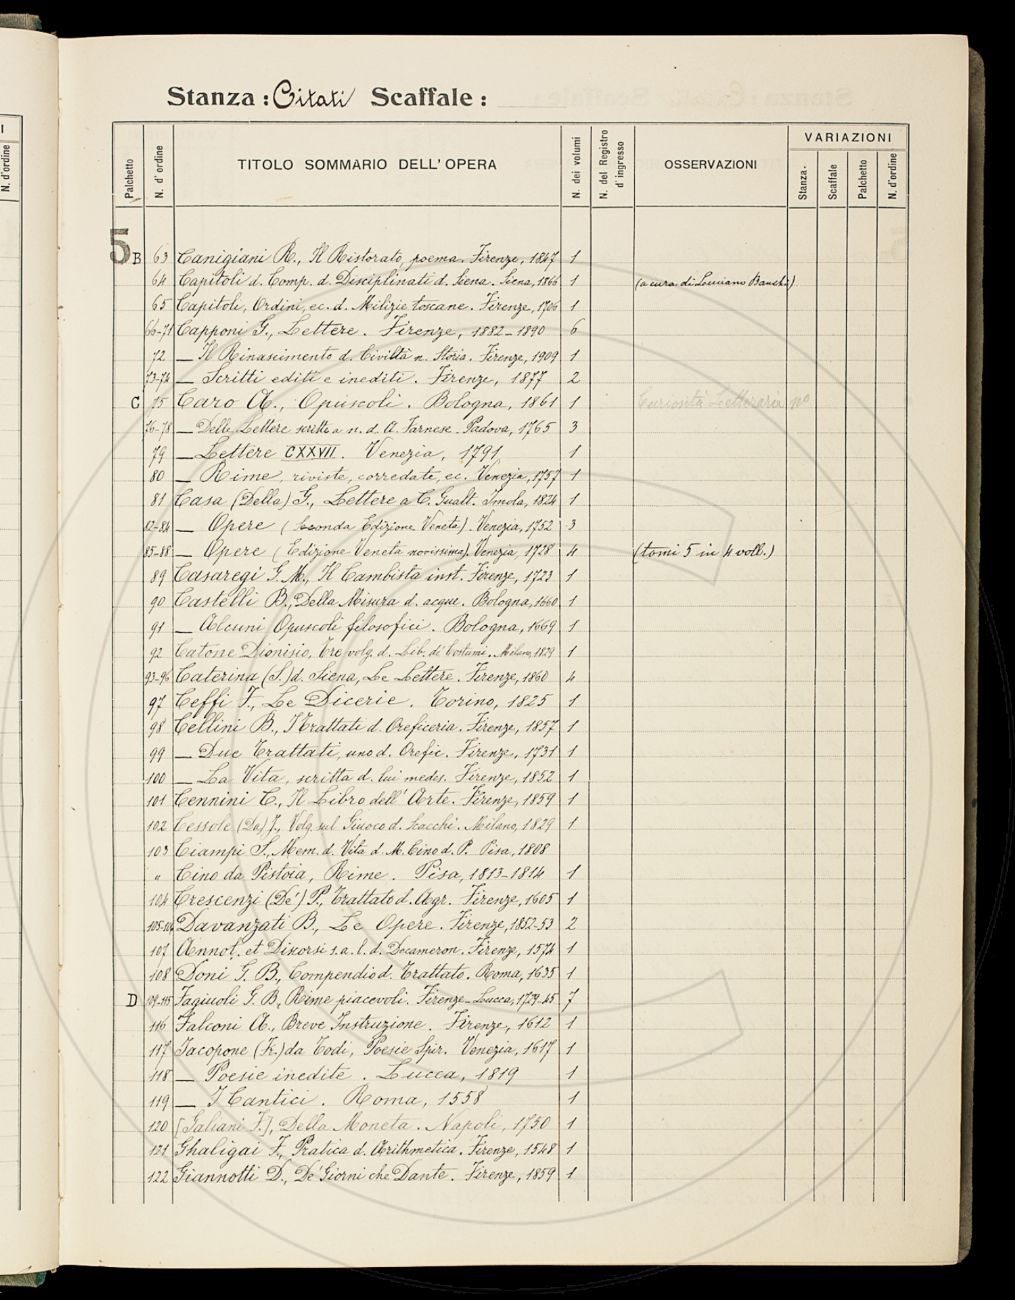 I
N. d'ordine
Stanza: Citati Scaffale:
Palchetto N. d'ordine TITOLO SOMMARIO DELL'OPERA N. dei volumi N. del Registro d'ingresso OSSERVAZIONI VARIAZIONI
Stanza. Scaffale Palchetto N. d'ordine
5
B 63 Canigiani R., Il Ristorato, poema. Firenze, 1847 1
64 Capitoli d. Comp. d. Disciplinati d. Siena. Siena, 1866 1 (a cura di Luciano Banchi)
65 Capitoli, Ordini, ec. d. Milizie toscane. Firenze, 1706 1
66-71 Capponi G., Lettere. Firenze, 1882-1890 6
72 — Il Rinascimento d. Civiltà n. Storia. Firenze, 1909 1
73-74 — Scritti editi e inediti. Firenze, 1877 2
C 75 Caro A., Opuscoli. Bologna, 1861 1 Curiosità Letteraria nº
76-78 — Delle Lettere scritte a n. d. A. Farnese. Padova, 1765 3
79 — Lettere CXXVII. Venezia, 1791 1
80 — Rime, riviste, corredate, ec. Venezia, 1757 1
81 Casa (Della) G., Lettere a C. Gualt. Imola, 1824 1
82-84 — Opere (Seconda Edizione Veneta). Venezia, 1752 3
85-88 — Opere (Edizione Veneta novissima). Venezia, 1728 4 (tomi 5 in 4 voll.)
89 Casaregi G. M., Il Cambista inst. Firenze, 1723 1
90 Castelli B., Della Misura d. acque. Bologna, 1660 1
91 — Alcuni Opuscoli filosofici. Bologna, 1669 1
92 Catone Dionisio, Tre volg. d. Lib. de' Costumi. Milano, 1829 1
93-96 Caterina (S.) d. Siena, Le Lettere. Firenze, 1860 4
97 Ceffi F., Le Dicerie. Torino, 1825 1
98 Cellini B., I Trattati d. Oreficeria. Firenze, 1857 1
99 — Due Trattati, uno d. Orefic. Firenze, 1731 1
100 — La Vita, scritta d. lui medes. Firenze, 1852 1
101 Cennini C., Il Libro dell' Arte. Firenze, 1859 1
102 Cessole (Da) J., Volg. sul Giuoco d. Scacchi. Milano, 1829 1
103 Ciampi S., Mem. d. Vita d. M. Cino d. P. Pisa, 1808
" Cino da Pistoia, Rime. Pisa, 1813-1814 1
104 Crescenzi (De') P., Trattato d. Agr. Firenze, 1605 1
105-106 Davanzati B., Le Opere. Firenze, 1852-53 2
107 Annot. et Discorsi s. a. l. d. Decameron. Firenze, 1574 1
108 Doni G. B., Compendio d. Trattato. Roma, 1635 1
D 109-115 Fagiuoli G. B., Rime piacevoli. Firenze-Lucca, 1729-45 7
116 Falconi A., Breve Instruzione. Firenze, 1612 1
117 Jacopone (Fr.) da Todi, Poesie Spir. Venezia, 1617 1
118 — Poesie inedite. Lucca, 1819 1
119 — I Cantici. Roma, 1558 1
120 [Galiani F.], Della Moneta. Napoli, 1750 1
121 Ghaligai F., Pratica d. Arithmetica. Firenze, 1548 1
122 Giannotti D., De' Giorni che Dante. Firenze, 1859 1